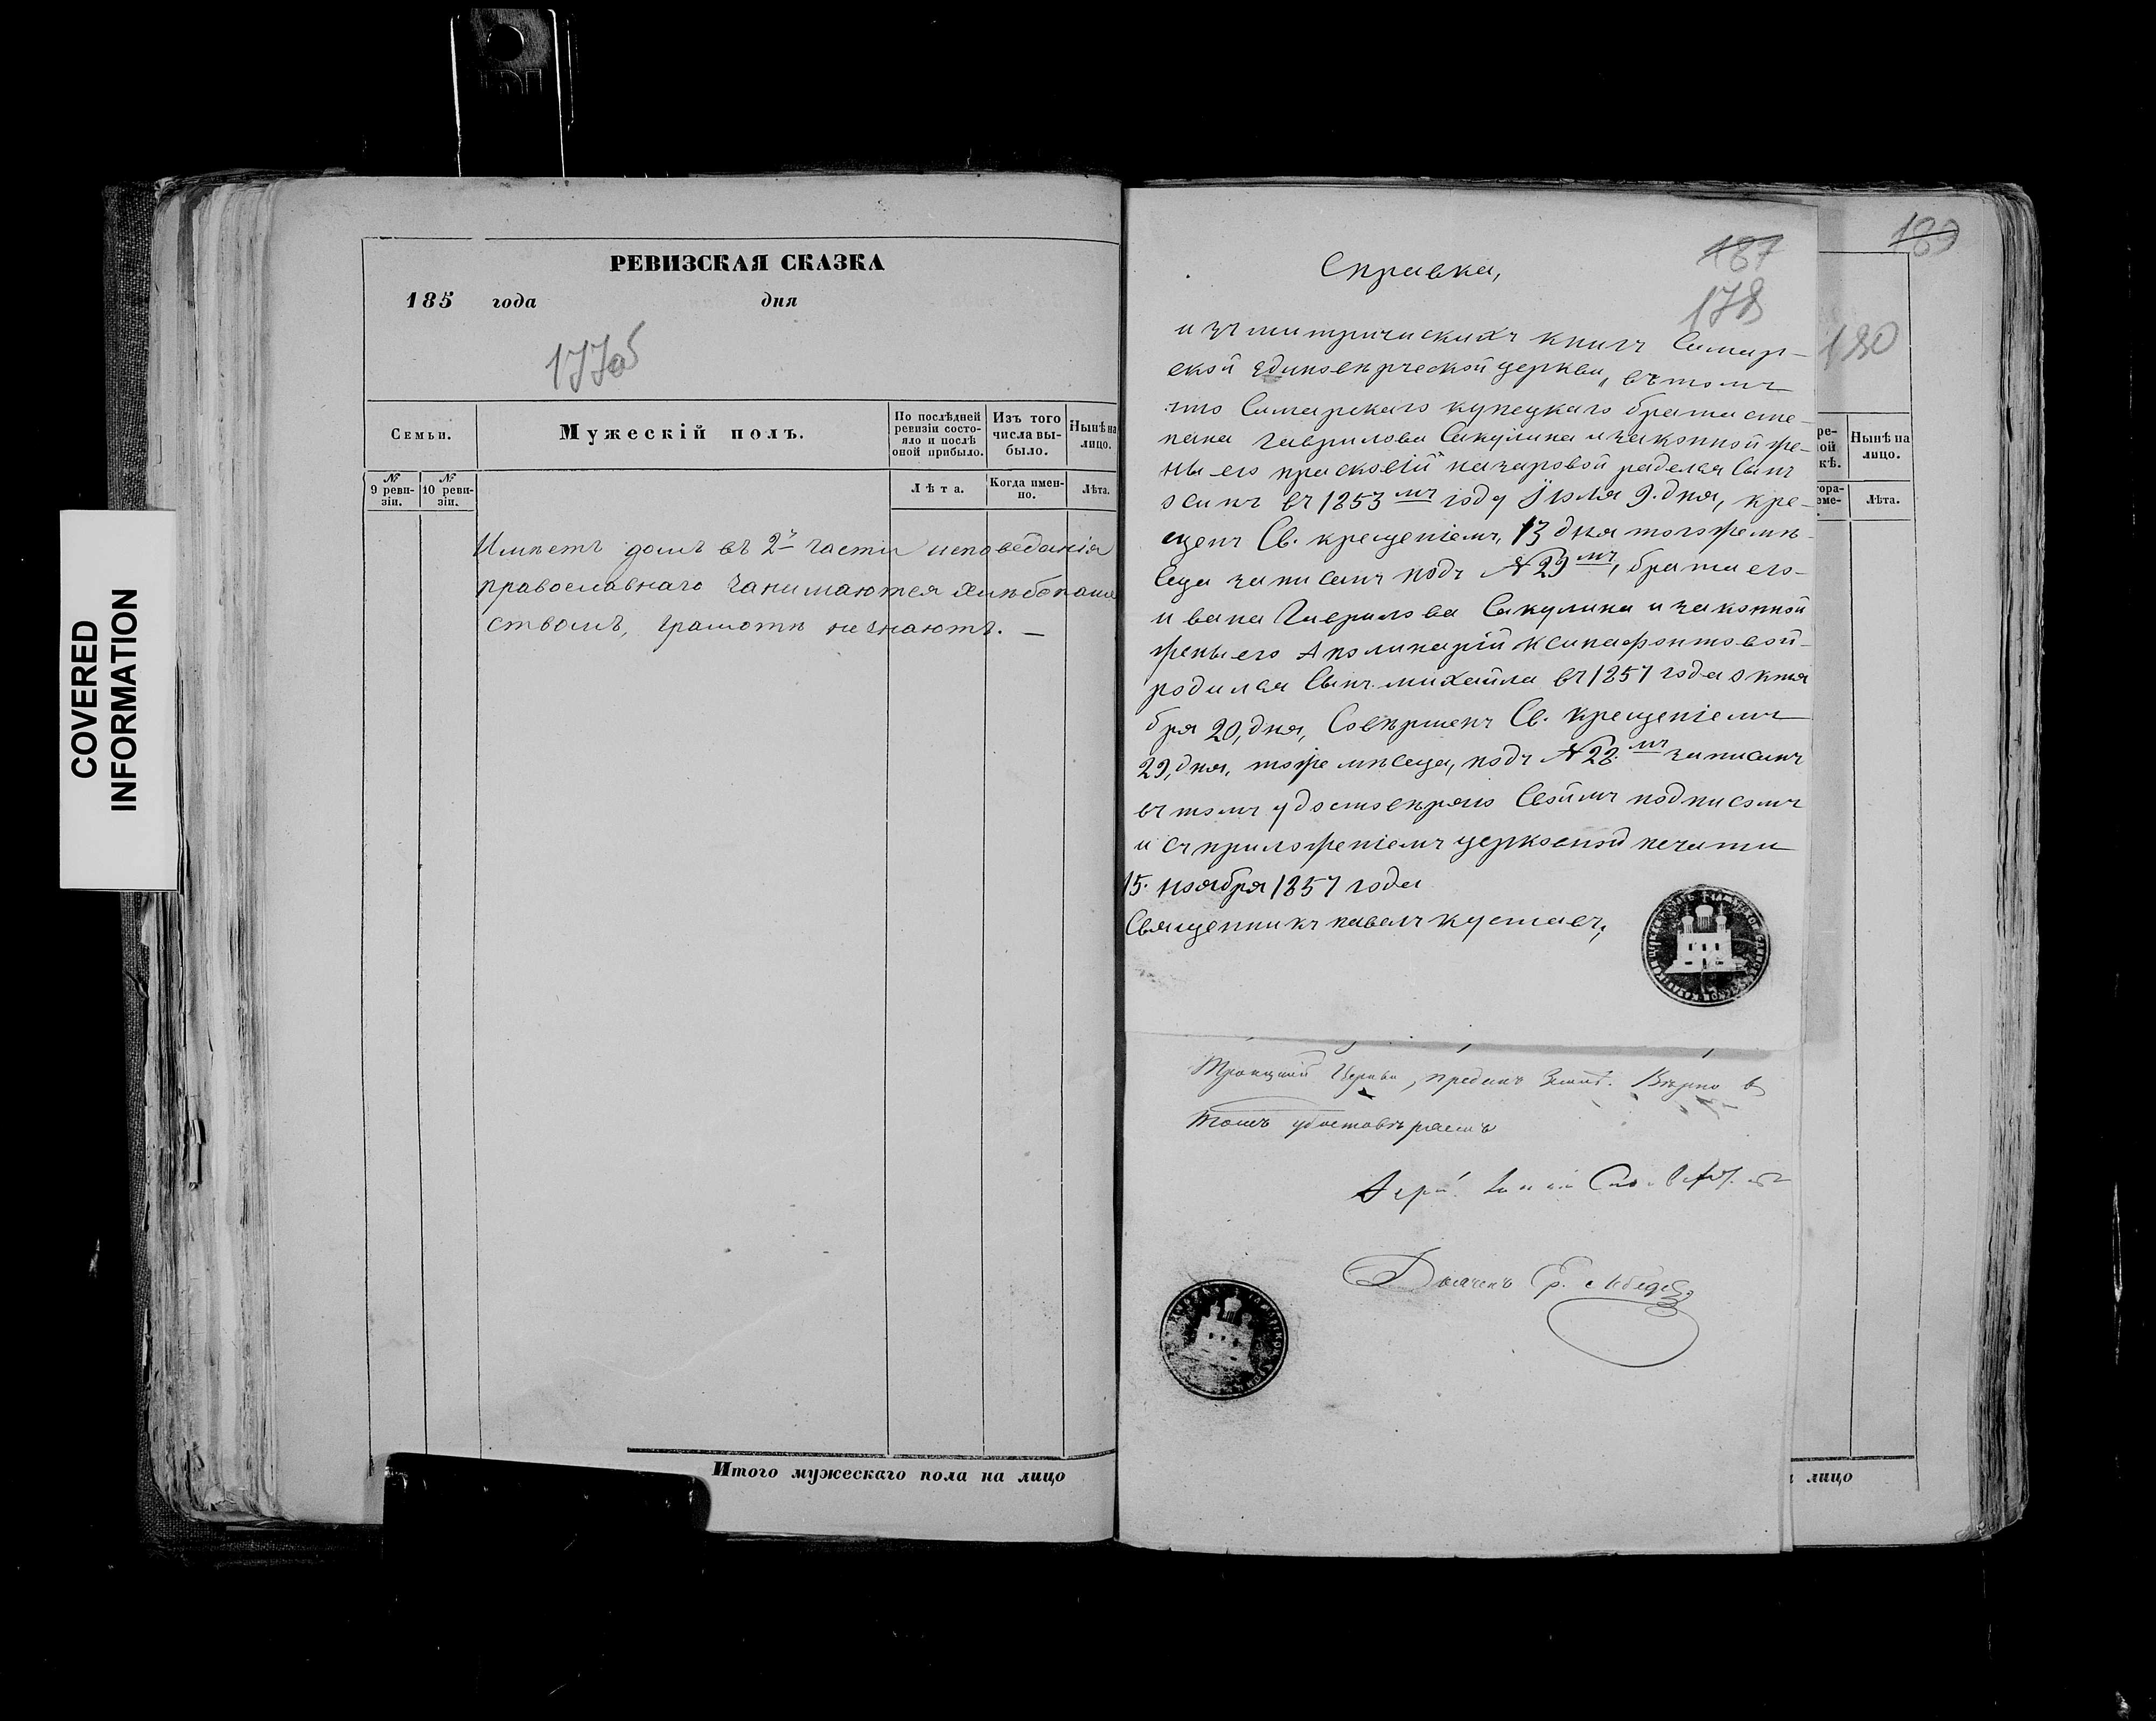 COVERED
INFORMATION
РЕВИЗСКАЯ СКАЗКА
185 года дня
177об
Семьи.
Мужескій полъ.
По послѣдней ревизіи состояло и послѣ оной прибыло.
Изъ того числа выбыло.
Нынѣ на лицо.
№ 9 ревизіи.
№ 10 ревизіи.
Лѣта.
Когда именно.
Лѣта.
Имѣетъ домъ въ 2й части исповеданія
православнаго занимаются хлѣбопаше
ствомъ, грамотѣ не знаютъ. —
Итого мужескаго пола на лицо
187
178
Справка,
изъ митрическихъ книгъ Самар-
ской Единовѣрческой церкви, въ томъ
что Самарскаго купецкаго брата сте-
пана гаврилова Сакулина и законной же-
ны его прасковіи назаровой раделся Сынъ
осипъ въ 1853мъ году Июля 9. дня, кре-
щенъ Св. крещеніемъ, 13 дня тогожемѣ-
сеца записанъ подъ №29мъ, брата его-
ивана Гаврилова Сакулина и законной
жены его Аполинаріи ксинафонтовой-
родился Сынъ михаила въ 1857 года октя
бря 20, дня, Совѣршенъ Св. Крещеніемъ
29, дня, тоже мѣсеца, подъ №28.мъ записанъ
въ томъ удостовѣряю Своимъ подписомъ
и съ приложеніемъ церковной печати
15. ноября 1857 года
Священникъ павелъ
Троицкой Церкви, Вѣрно в
томъ удостовѣряемъ
Дьяконъ
189
180
ре-
ой
кѣ.
Нынѣ на лицо.
ора-
еме-
Лѣта.
лицо